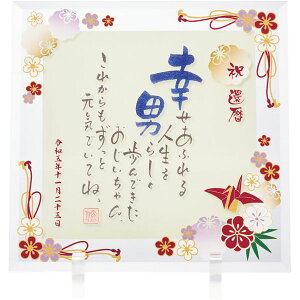 祝 還暦
幸せあふれる
人生を
男らしく
歩んできた
おじいちゃん。
これからもずっと
元気でいてね。
令和五年十一月二十三日